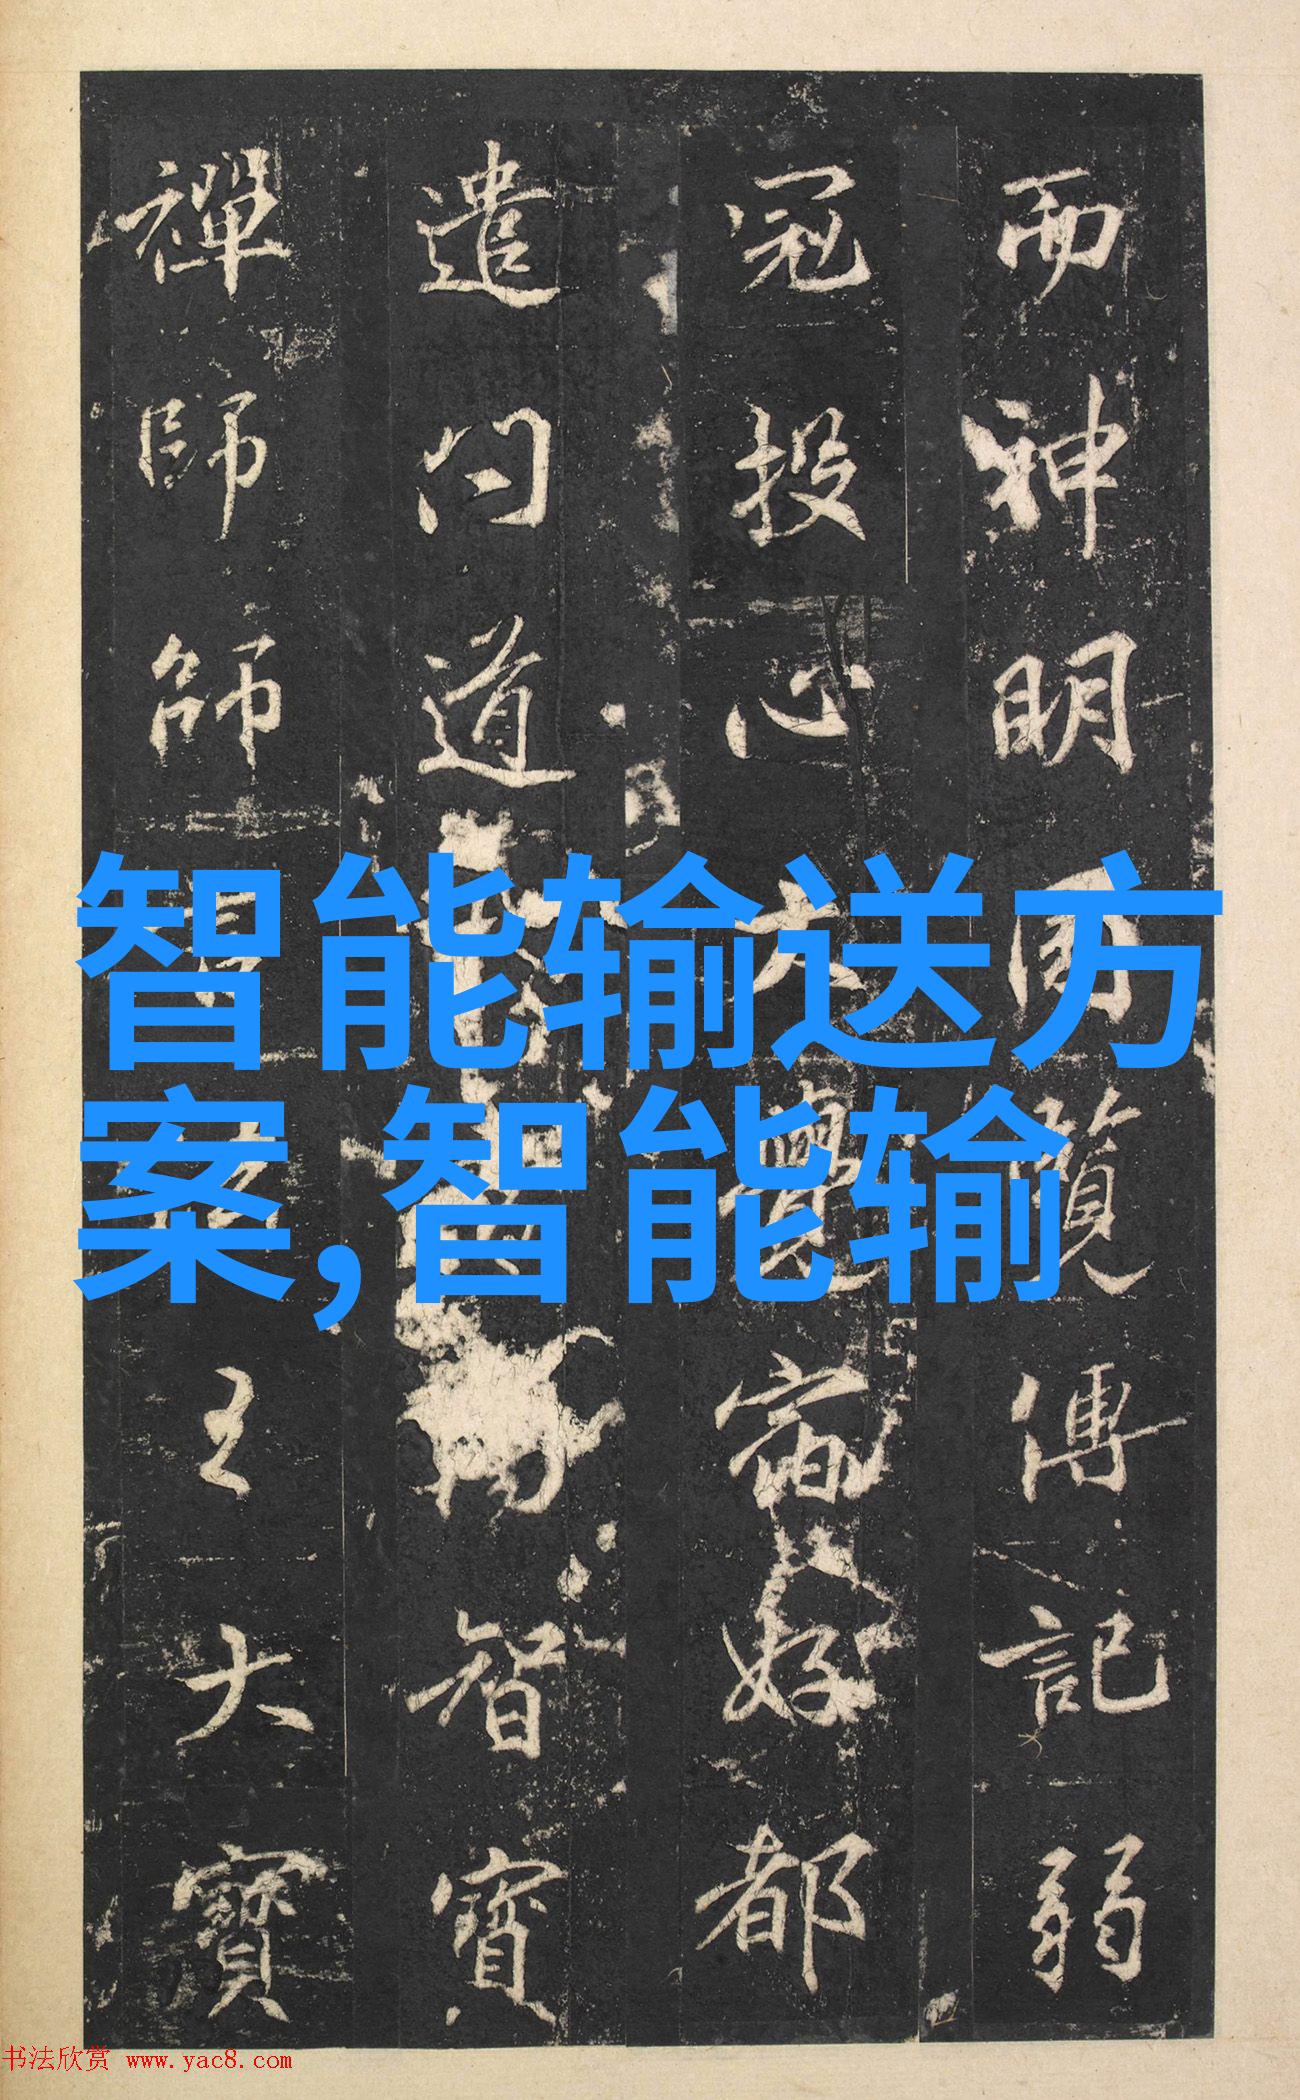 而神明周覽傳記弱
冠投心大覺宿好都
遣問道智寶
禪師師大寶
智能输送方
案,智能输
书法欣赏 www.yac8.com